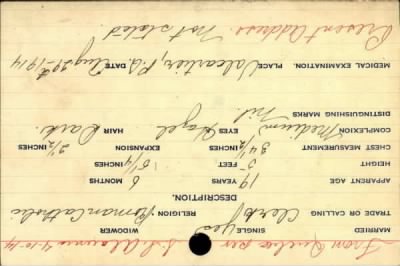 From Quebec per S.S. Alaunia 4-10-14
MARRIED SINGLE yes WIDOWER
TRADE OR CALLING Clerk RELIGION Roman Catholic
DESCRIPTION.
APPARENT AGE 19 YEARS 6 MONTHS
HEIGHT 5 FEET 6 1/4 INCHES
CHEST MEASUREMENT 34 1/2 INCHES EXPANSION 2 1/2 INCHES
COMPLEXION Medium EYES Hazel HAIR Dark.
DISTINGUISHING MARKS Nil.
MEDICAL EXAMINATION. PLACE Valcartier, P.Q. DATE Aug 29th 1914
Present address. Not stated